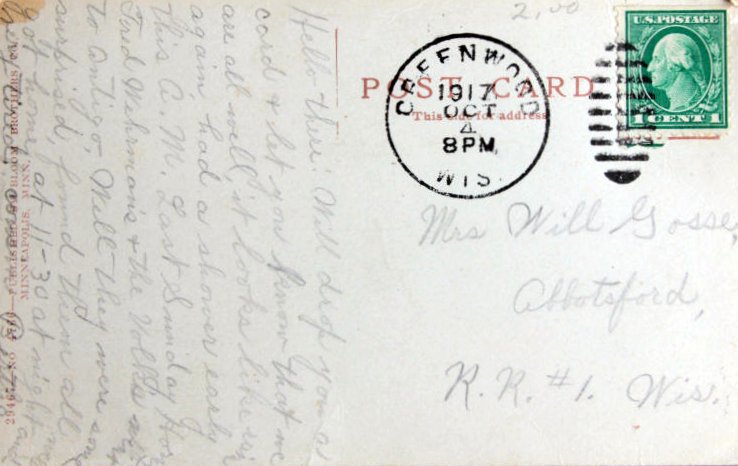 2.00
U.S. POSTAGE
1 CENT 1
GREENWOOD
1917
OCT
4
8 PM
WIS.
POST CARD
This side for address
Mrs Will Gosse,
Abbotsford,
R.R. #1. Wis.
Hello there! Will drop you a
card & let you know that we
are all well, it looks like rain
again had a shower early
this A.M. Last Sunday
Ford & the
to Antigo, Well they were some
surprised, found them all
Got home at 11-30 at night
BLOOM BROTHERS CO.
MINNEAPOLIS, MINN.